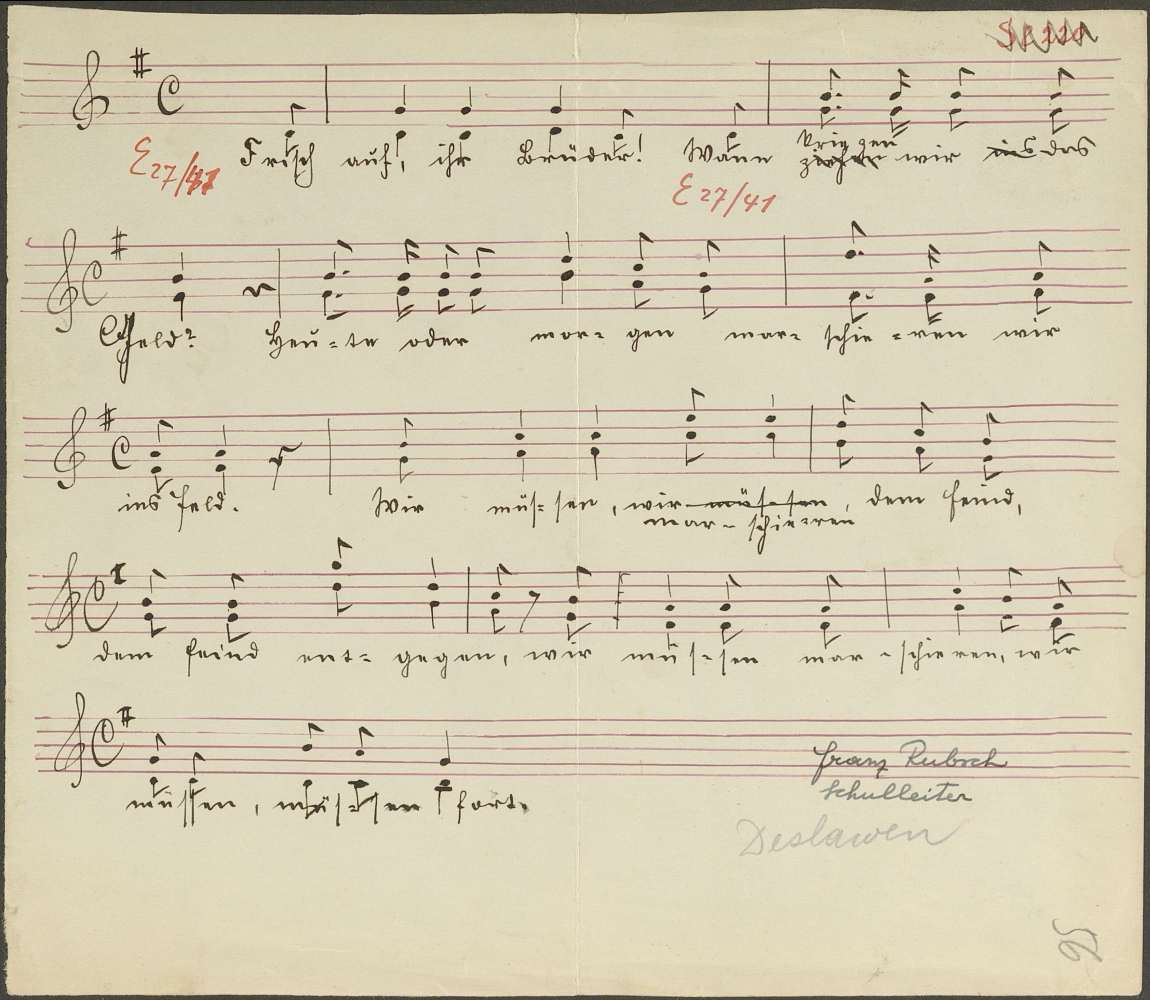 E 27/41
Frisch auf, ihr Brüder! Wann kriegen ziehen wir ins das
E 27/41
Feld? Heu-te oder mor-gen mar-schie-ren wir
ins Feld. Wir müs-sen, wir müs-sen, dem Feind,
mar-schieren
dem Feind ent-gegen, wir müs-sen mar-schieren, wir
müssen, müs-sen fort.
Franz Rubsch
Schulleiter
Deslawen